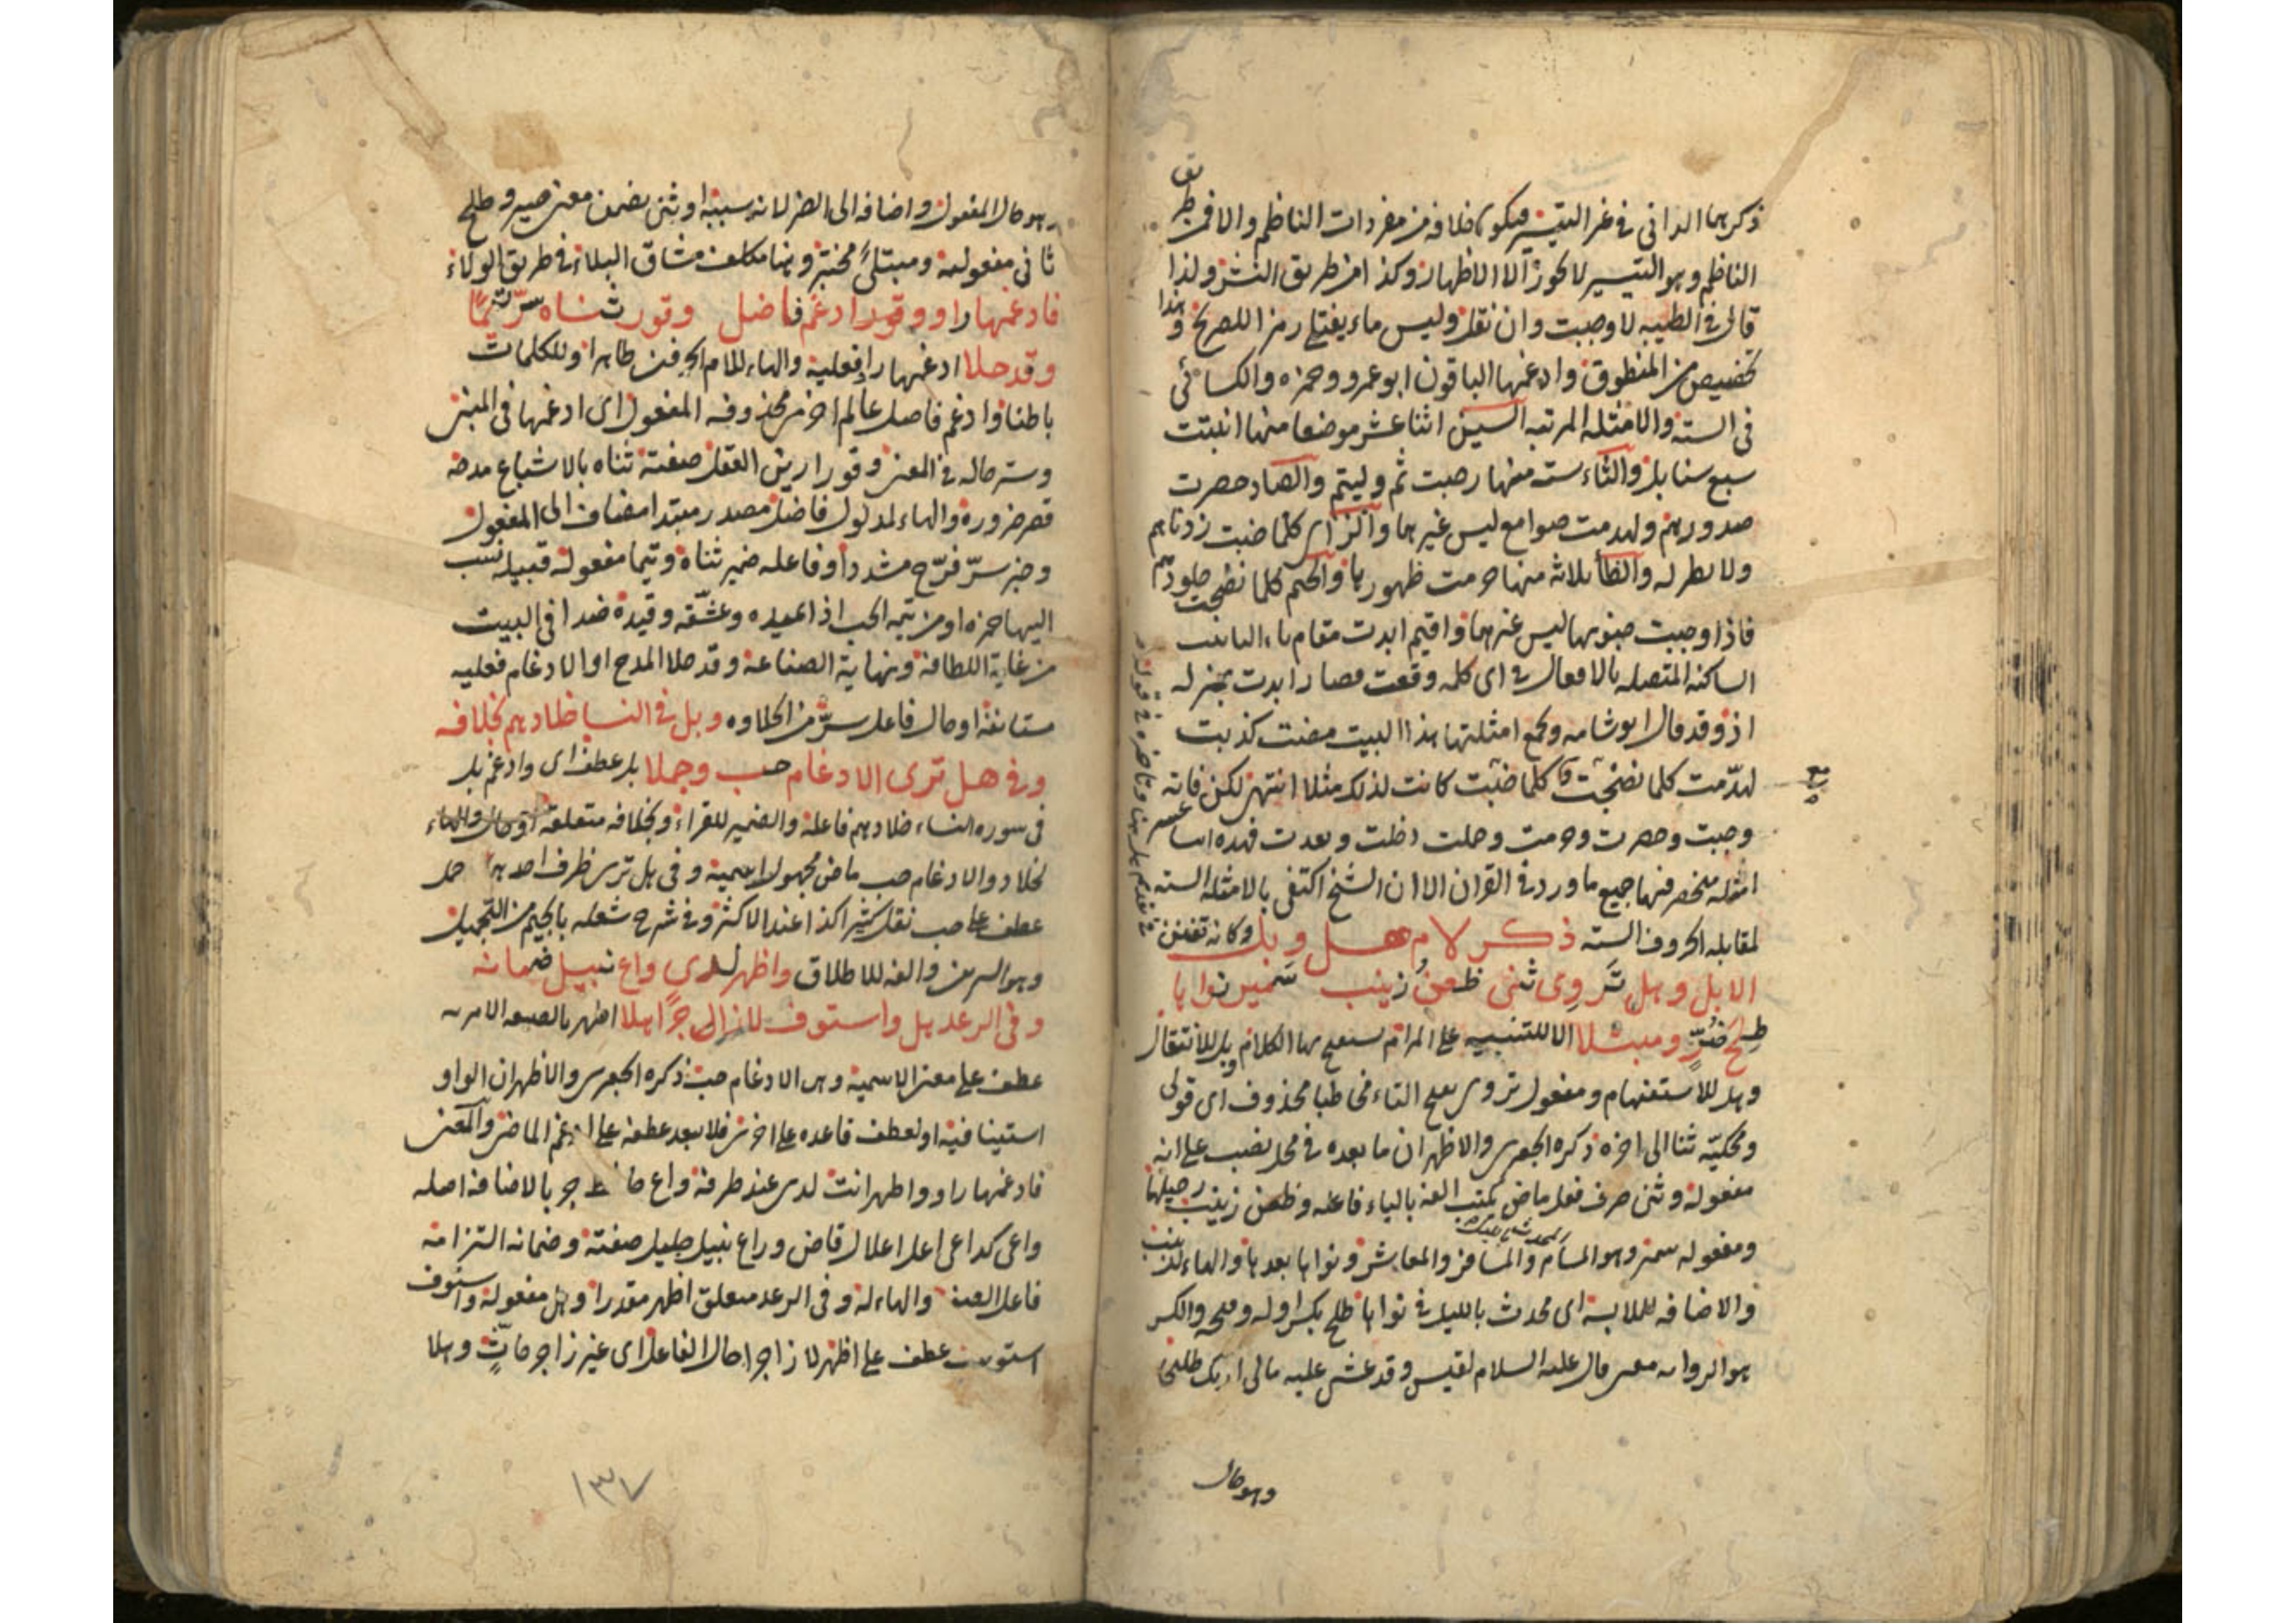 ذكرهما الدانى فى غير التيسير فيكون خلافه من مفردات الناظم والا فمن طريق
الناظم وهو التيسير لا يجوز الا الاظهار وكذا من طريق النشر ولذا
قال فى الطيبه لا وجبت وان نقل وليس ماء يفتلى رمز اللصريح وهذا
تخصيص من المنطوق وادغمها الباقون ابو عمرو وحمزه والكسائى
فى السته والامثله المرتبه السين اثنا عشر موضعا منها انبتت
سبع سنابل والثاء سته منها رحبت ثم وليتم والصاد حصرت
صدورهم ولهدمت صوامع ليس غيرهما والزاى كلما خبت زدناهم
ولا نظر له والظا ثلاثه منها حرمت ظهورها والجيم كلما نضجت جلودهم
فاذا وجبت جنوبها ليس غيرهما واقيم ابدت مقام تاء التانيث
الساكنه المتصله بالافعال فى اى كلمه وقعت فصار ابدت بمنزله
اذ وقد قال ابو شامه وجمع امثلتها هذا البيت مضت كذبت
لهدمت كلما نضجت وكلما خبت كانت لذلك مثلا انتهى لكن فاته
وجبت وحصرت وحرمت وحملت دخلت وبعدت فهذه
امثله منحصر فيها جميع ما ورد فى القران الا ان الشيخ اكتفى بالامثله السته
لمقابله الحروف السته ذكر لام هل وبل وكانه تفنن
الا بل وهل تروى ثنى ظعن زينب سمير نواها
طلح ضر ومبتلا الا للتنبيه على المرام يستفتح بها الكلام وبل للانتقال
وهل للاستفهام ومفعول تروى بفتح التاء مخاطبا محذوف اى قولى
ومحكيه ثنا الى اخره ذكره الجعبرى والاظهر ان ما بعده فى محل نصب على انه
مفعوله وثنى صرف فعل ماض كتب الفه بالياء فاعله وظعن زينب رحيلها
ومفعوله سمير وهو المسامر والمسافر والمعاشر ونواها بعدها والهاء لزينب
والاضافه للملابسة اى محدث بالليل فى نواها طلح بكسر اوله وفتحه والكسر
هو الروايه قال عليه السلام لقيس وقد غشى عليه مالى اريك طلحا
وهو حال
وهو حال المفعول واضافه الى الضر لانه سببه او ثنى بضمن معنى صير وطلح
ثانى مفعوليه ومبتلى مختبر وهنا مكلف مشاق البلاء فى طريق الولاء
فادغمها راو وقور ادغم فاضل وقور ثناه سر تيما
وقد حلا ادغمها راو فعلية والهاء للام الحرفين ظاهرا وللكلمات
باطنا وادغم فاضل عالم اخرى محذوفه المفعول اى ادغمها فى المبنى
وستر حاله فى المعنى وقور ارزين العقل صفته ثناه بالاشباع مدحه
قصر ضروره والهاء لمدلول فاضل مصدر مبتدا مضاف الى المفعول
وخبر سر فرح مشددا وفاعله ضمير ثناه وتيما مفعوله قبيله نسب
اليها حمزه او من تيمه الحب اذا عبده وعشقه وقيده ضدا فى البيت
من غاية اللطافه ونهاية الصناعه وقد حلا المدح او الادغام فعليه
مستانفه او حال فاعل سر من الحلاوه وبل فى النسا خلادهم بخلافه
وفى هل ترى الادغام حب وحملا بل عطف اى وادغم بل
فى سوره النساء خلادهم فاعله والضمير للقراء وبخلافه متعلقه او حال والهاء
لخلاد والادغام حب ماض مجهول اسمية وفى هل ترى ظرف احدهما حمل
عطف على حب نقل كثيرا كذا عند الاكثر وفى شرح شعله بالجيم من التجميل
وهو التزيين والفه للاطلاق واظهر لدى واع نبيل ضمانه
وفى الرعد هل واستوف لا زاجرا هلا اظهر بالصيغه الامريه
عطف على معنى الاسمية وهى الادغام حب ذكره الجعبرى والاظهر ان الواو
استينافية او لعطف قاعده على اخرى فلا يبعد عطفه على ادغم الماضى والمعنى
فادغمها راو واظهر انت لدى عند ظرفه واع جر بالاضافه اصله
واعى كداعى اعل اعلال قاض وراع نبيل جليل صفته وضمانه التزامه
فاعل الصفه والهاء له وفى الرعد متعلق اظهر مقدرا وهل مفعوله واستوف
استوعب عطف على اظهر لا زاجرا حال الفاعل اى غير زاجر مات وهلا
١٣٧